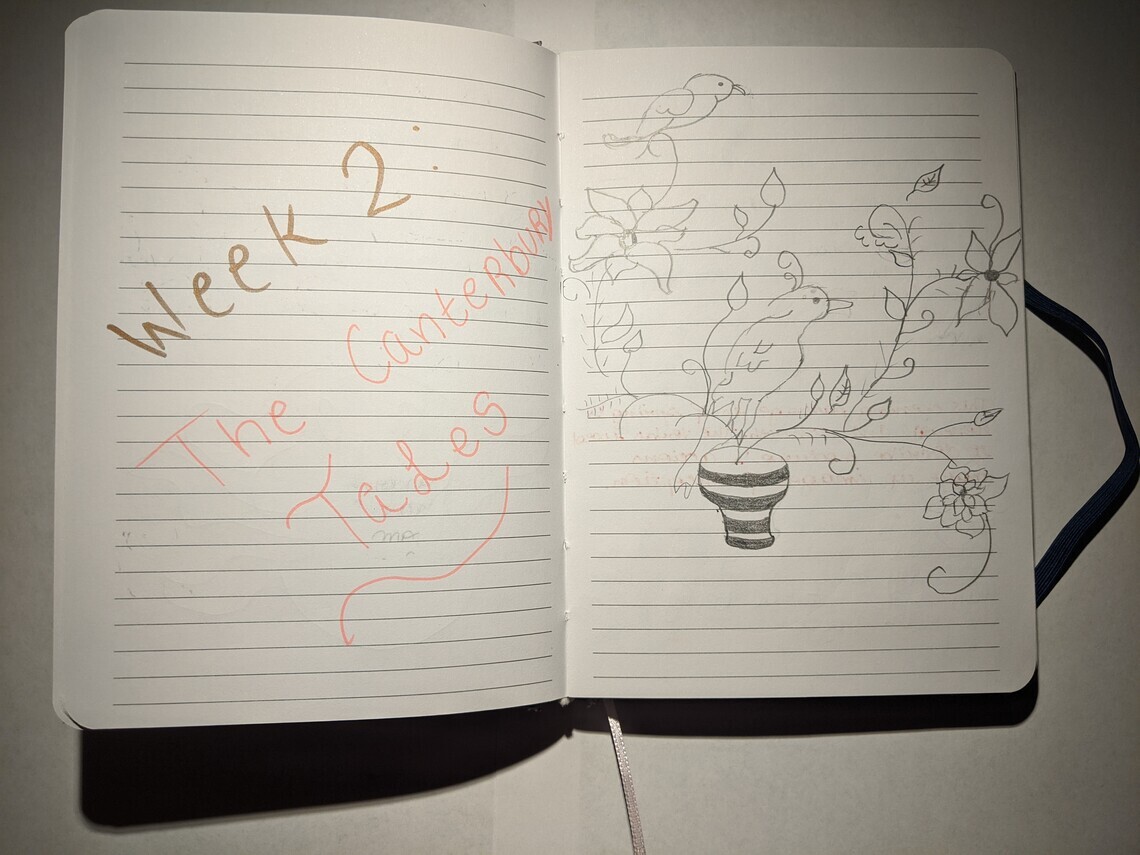 Week 2:
The Canterbury
Tales